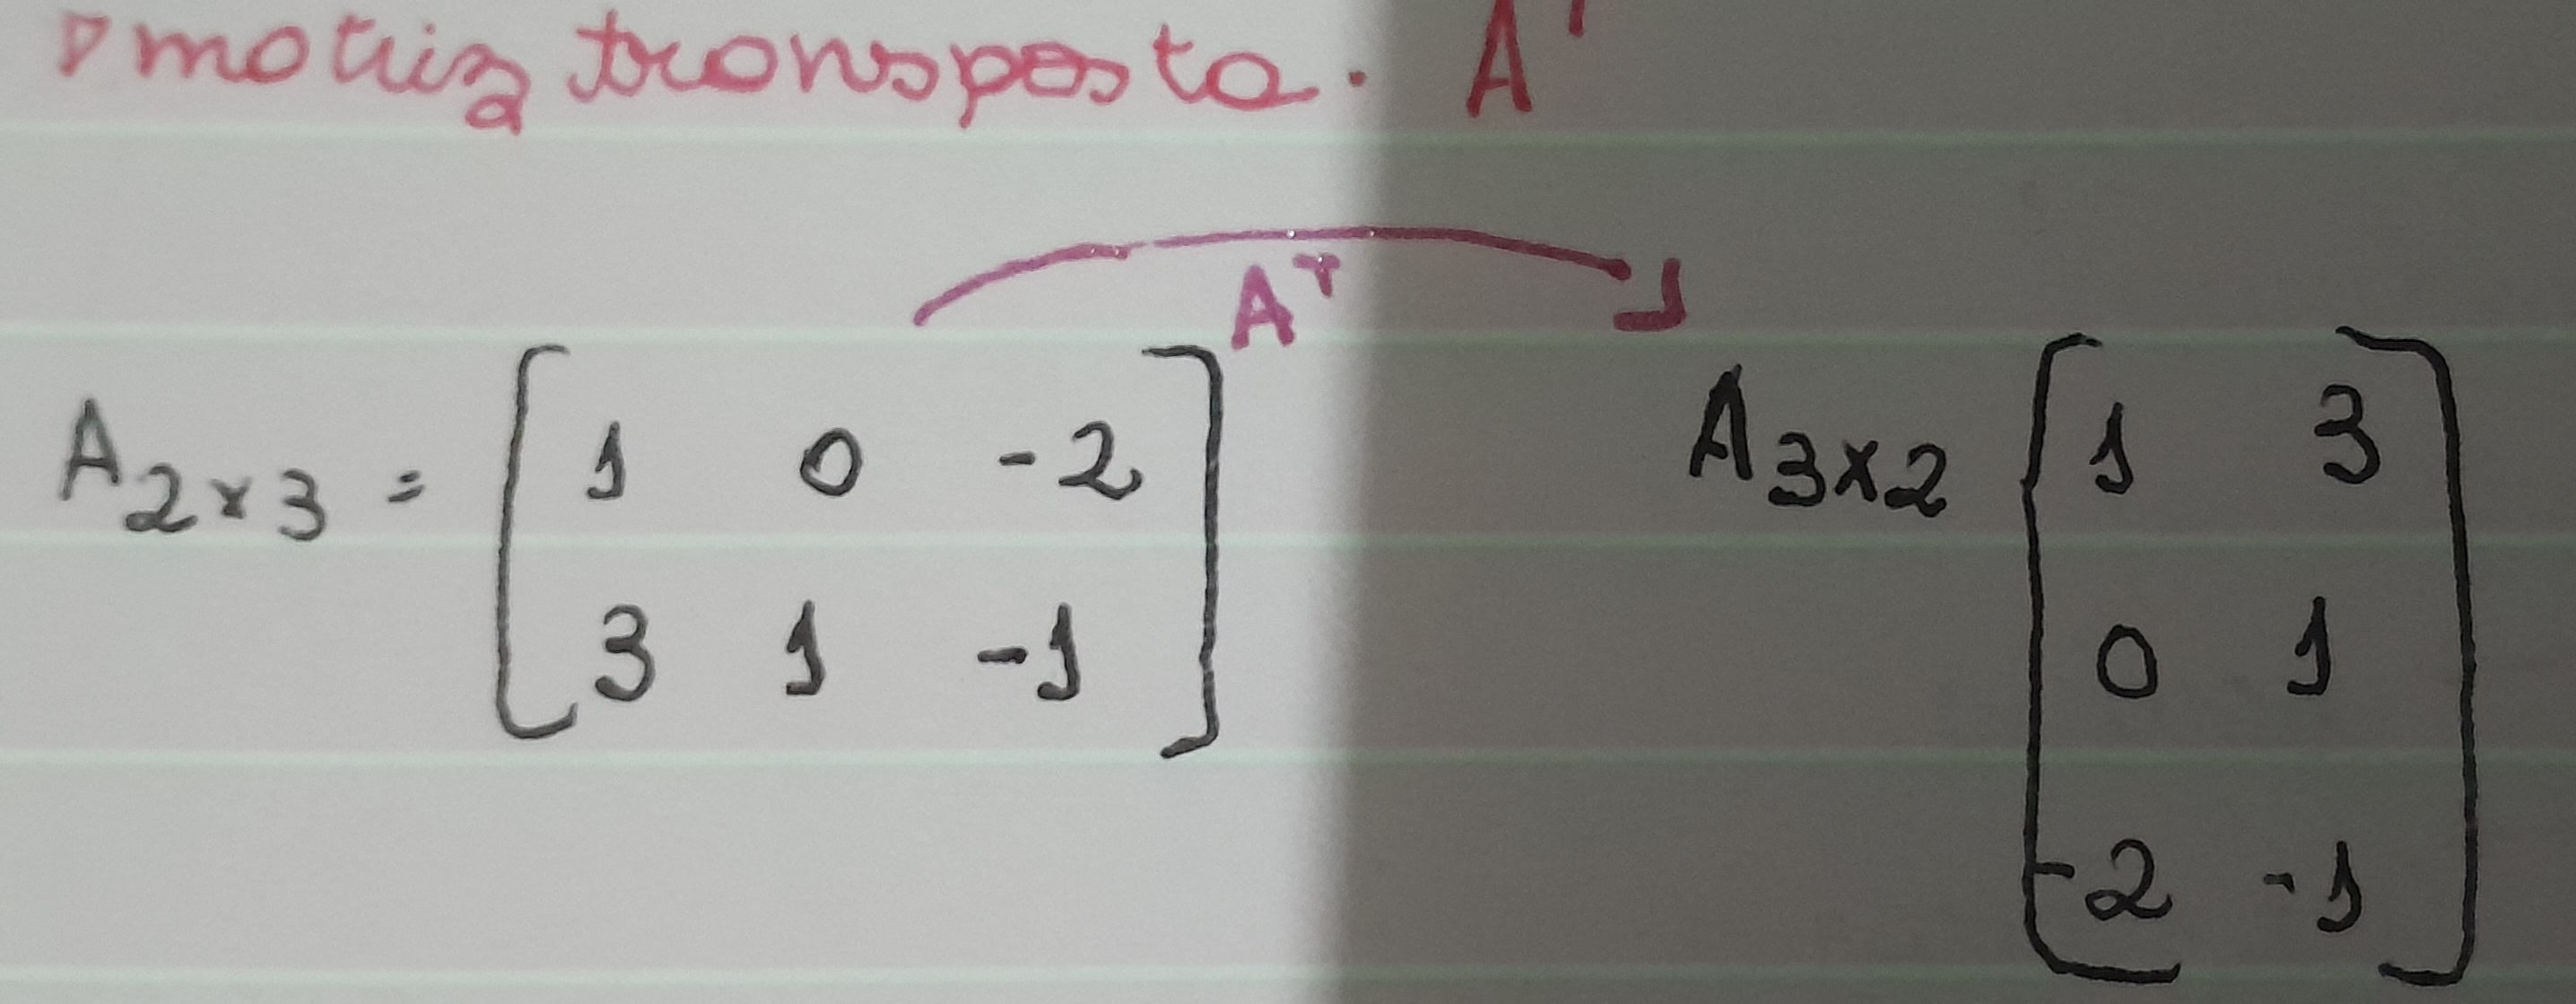 matriz transposta. Aᵀ
Aᵀ
A₂ₓ₃ = [ 1 0 -2
3 1 -1 ]
A₃ₓ₂ [ 1 3
0 1
-2 -1 ]